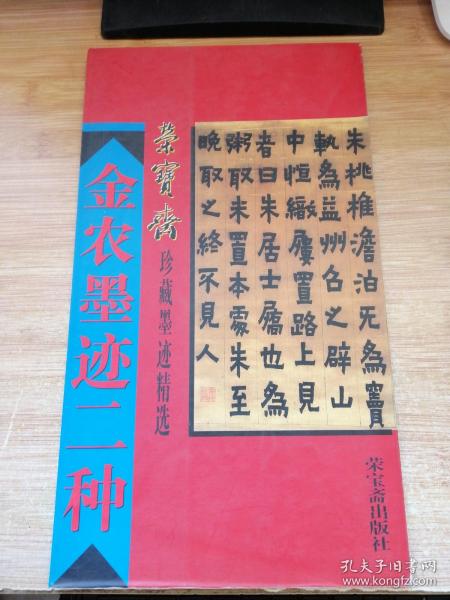 金农墨迹二种
榮寶齋
珍藏墨迹精选
朱桃椎澹泊无為竇
軌為益州召之辟山
中恒織屨置路上見
者曰朱居士屩也為
粥取米置本處朱至
晚取之終不見人
荣宝斋出版社
孔夫子旧书网
www.kongfz.com